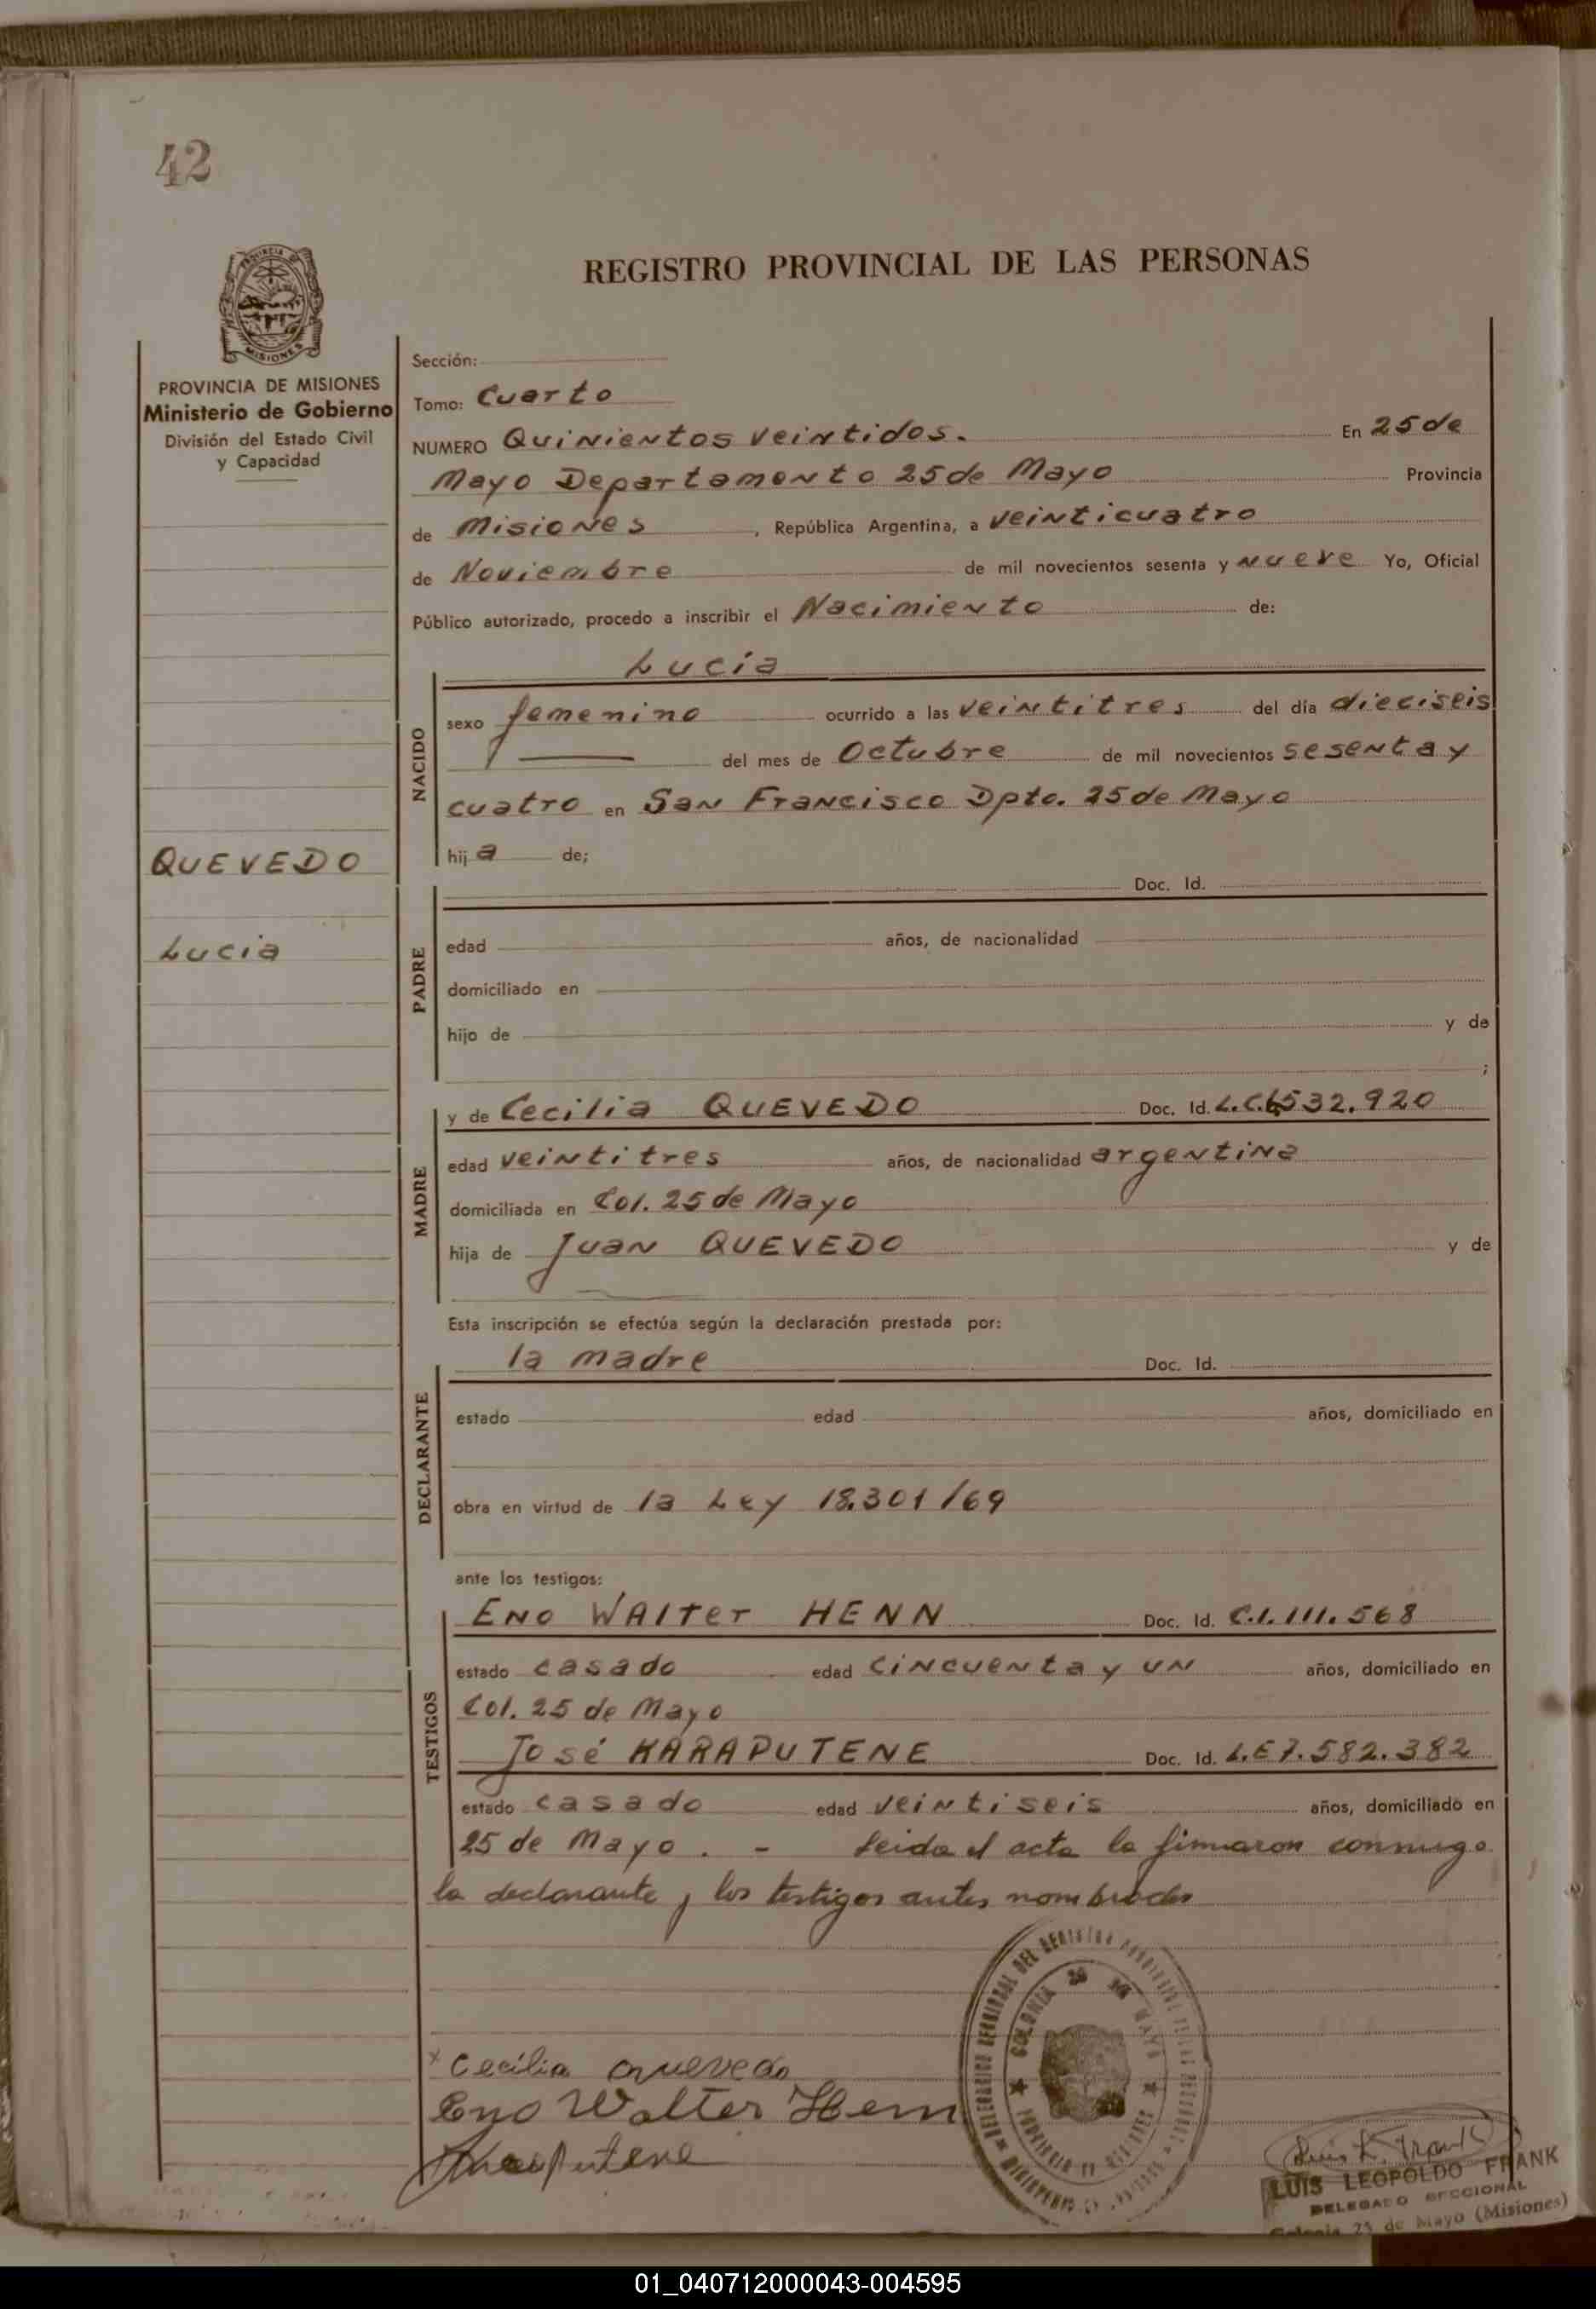 42
PROVINCIA DE MISIONES
Ministerio de Gobierno
División del Estado Civil
y Capacidad
QUEVEDO
Lucia
REGISTRO PROVINCIAL DE LAS PERSONAS
Sección:
Tomo: Cuarto
NUMERO Quinientos veintidos. En 25 de
Mayo Departamento 25 de Mayo Provincia
de Misiones, República Argentina, a veinticuatro
de Noviembre de mil novecientos sesenta y nueve Yo, Oficial
Público autorizado, procedo a inscribir el Nacimiento de:
Lucía
NACIDO
sexo femenino ocurrido a las veintitres del día dieciseis
del mes de Octubre de mil novecientos sesenta y
cuatro en San Francisco Dpto. 25 de Mayo
hija de;
PADRE
Doc. Id.
edad años, de nacionalidad
domiciliado en
hijo de y de
;
MADRE
y de Cecilia QUEVEDO Doc. Id. L.C. 6532.920
edad veintitres años, de nacionalidad argentina
domiciliada en Col. 25 de Mayo
hija de Juan QUEVEDO y de
Esta inscripción se efectúa según la declaración prestada por:
DECLARANTE
la madre Doc. Id.
estado edad años, domiciliado en
obra en virtud de la Ley 18.301/69
ante los testigos:
TESTIGOS
ENO WALTer HENN Doc. Id. C.I. 111.568
estado casado edad cincuenta y un años, domiciliado en
Col. 25 de Mayo
José KARAPUTENE Doc. Id. L.E 7.582.382
estado casado edad veintiseis años, domiciliado en
25 de Mayo . - Leida el acta la firmaron conmigo
la declarante y los testigos antes nombrados
x Cecilia Quevedo
Eno Walter Henn
COLONIA 25 DE MAYO
PROVINCIA DE MISIONES
Luis L. Frank
LUIS LEOPOLDO FRANK
DELEGADO SECCIONAL
Colonia 25 de Mayo (Misiones)
01_040712000043-004595